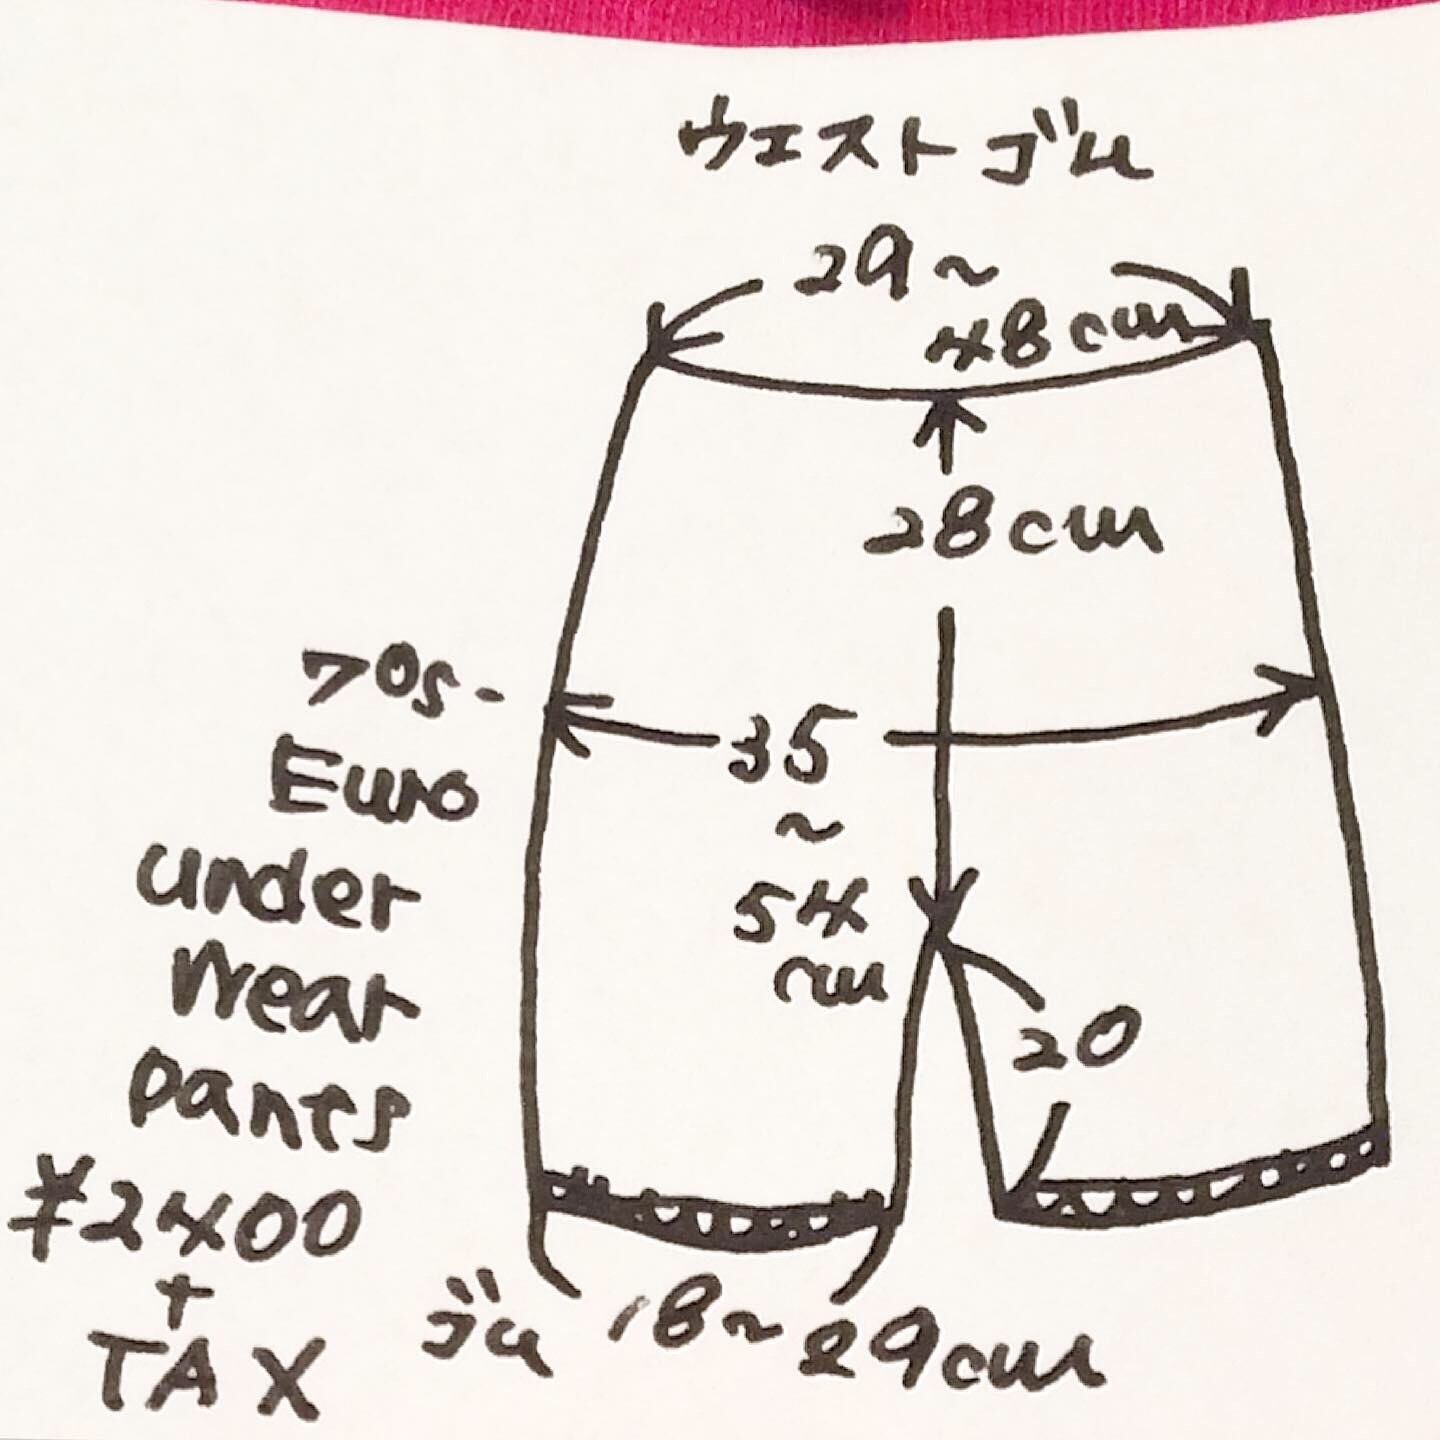 ウエストゴム
29~
48cm
28cm
35
~
54
cm
20
70s-
Euro
under
wear
pants
¥2400
+
TAX
ゴム 18~29cm